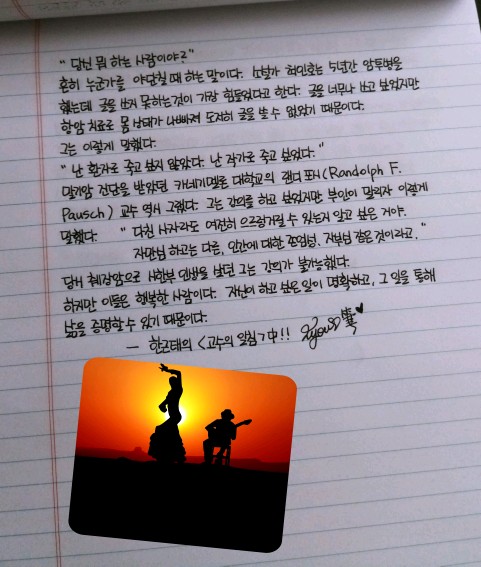 "당신 뭐 하는 사람이야?"
흔히 누군가를 야단칠 때 하는 말이다. 소설가 최인호는 5년간 암투병을
했는데 글을 쓰지 못하는것이 가장 힘들었다고 한다. 글을 너무나 쓰고 싶었지만
항암 치료로 몸 상태가 나빠져 도저히 글을 쓸 수 없었기 때문이다.
그는 이렇게 말했다.
"난 환자로 죽고 싶지 않았다. 난 작가로 죽고 싶었다."
말기암 진단을 받았던 카네기멜론 대학교의 랜디 포시(Randolph F.
Pausch) 교수 역시 그랬다. 그는 강의를 하고 싶었지만 부인이 말리자 이렇게
말했다. "다친 사자라도 여전히 으르렁거릴 수 있는지 알고 싶은 거야.
자만심 하고는 다른, 인간에 대한 존엄성, 자부심 같은 것이라고."
당시 췌장암으로 시한부 인생을 살던 그는 강의가 불가능했다.
하지만 이들은 행복한 사람이다. 자신이 하고 싶은 일이 명확하고, 그 일을 통해
삶을 증명할 수 있기 때문이다.
- 한근태의 <고수의 일침> 中!!